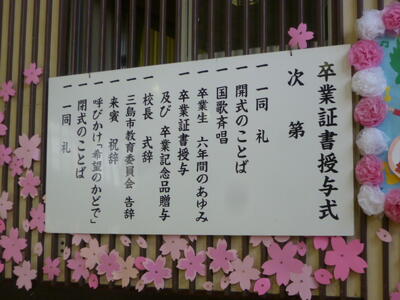 卒業証書授与式
次第
一 一同 礼
一 開式のことば
一 国歌斉唱
一 卒業生 六年間のあゆみ
一 卒業証書授与
及び 卒業記念品贈与
一 校長 式辞
一 三島市教育委員会 告辞
一 来賓 祝辞
一 呼びかけ「希望のかどで」
一 閉式のことば
一 一同 礼